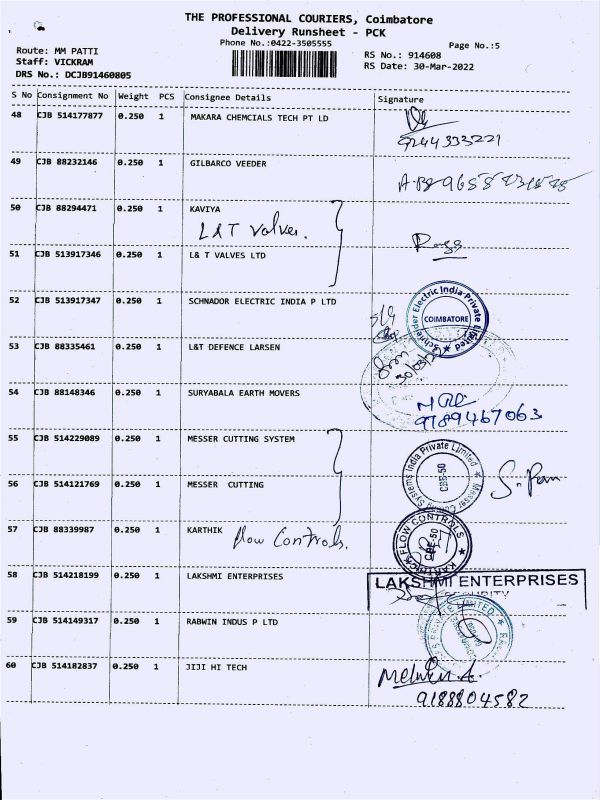 THE PROFESSIONAL COURIERS, Coimbatore
Delivery Runsheet - PCK
Phone No.:0422-3505555
Page No.:5
Route: MM PATTI
RS No.: 914608
Staff: VICKRAM
RS Date: 30-Mar-2022
DRS No.: DCJB91460805
S No Consignment No Weight PCS Consignee Details Signature
48 CJB 514177877 0.250 1 MAKARA CHEMCIALS TECH PT LD
9244333221
49 CJB 88232146 0.250 1 GILBARCO VEEDER
50 CJB 88294471 0.250 1 KAVIYA
L&T Valves.
51 CJB 513917346 0.250 1 L& T VALVES LTD
52 CJB 513917347 0.250 1 SCHNADOR ELECTRIC INDIA P LTD
Schneider Electric India Private Limited
COIMBATORE
53 CJB 88335461 0.250 1 L&T DEFENCE LARSEN
54 CJB 88148346 0.250 1 SURYABALA EARTH MOVERS
9789467063
55 CJB 514229089 0.250 1 MESSER CUTTING SYSTEM
Messer Cutting Systems India Private Limited
CBE-50
56 CJB 514121769 0.250 1 MESSER CUTTING
57 CJB 88339987 0.250 1 KARTHIK
flow Controls.
KARTHICK FLOW CONTROLS
CBE-50
58 CJB 514218199 0.250 1 LAKSHMI ENTERPRISES
LAKSHMI ENTERPRISES
SECURITY
59 CJB 514149317 0.250 1 RABWIN INDUS P LTD
60 CJB 514182837 0.250 1 JIJI HI TECH
9188804582